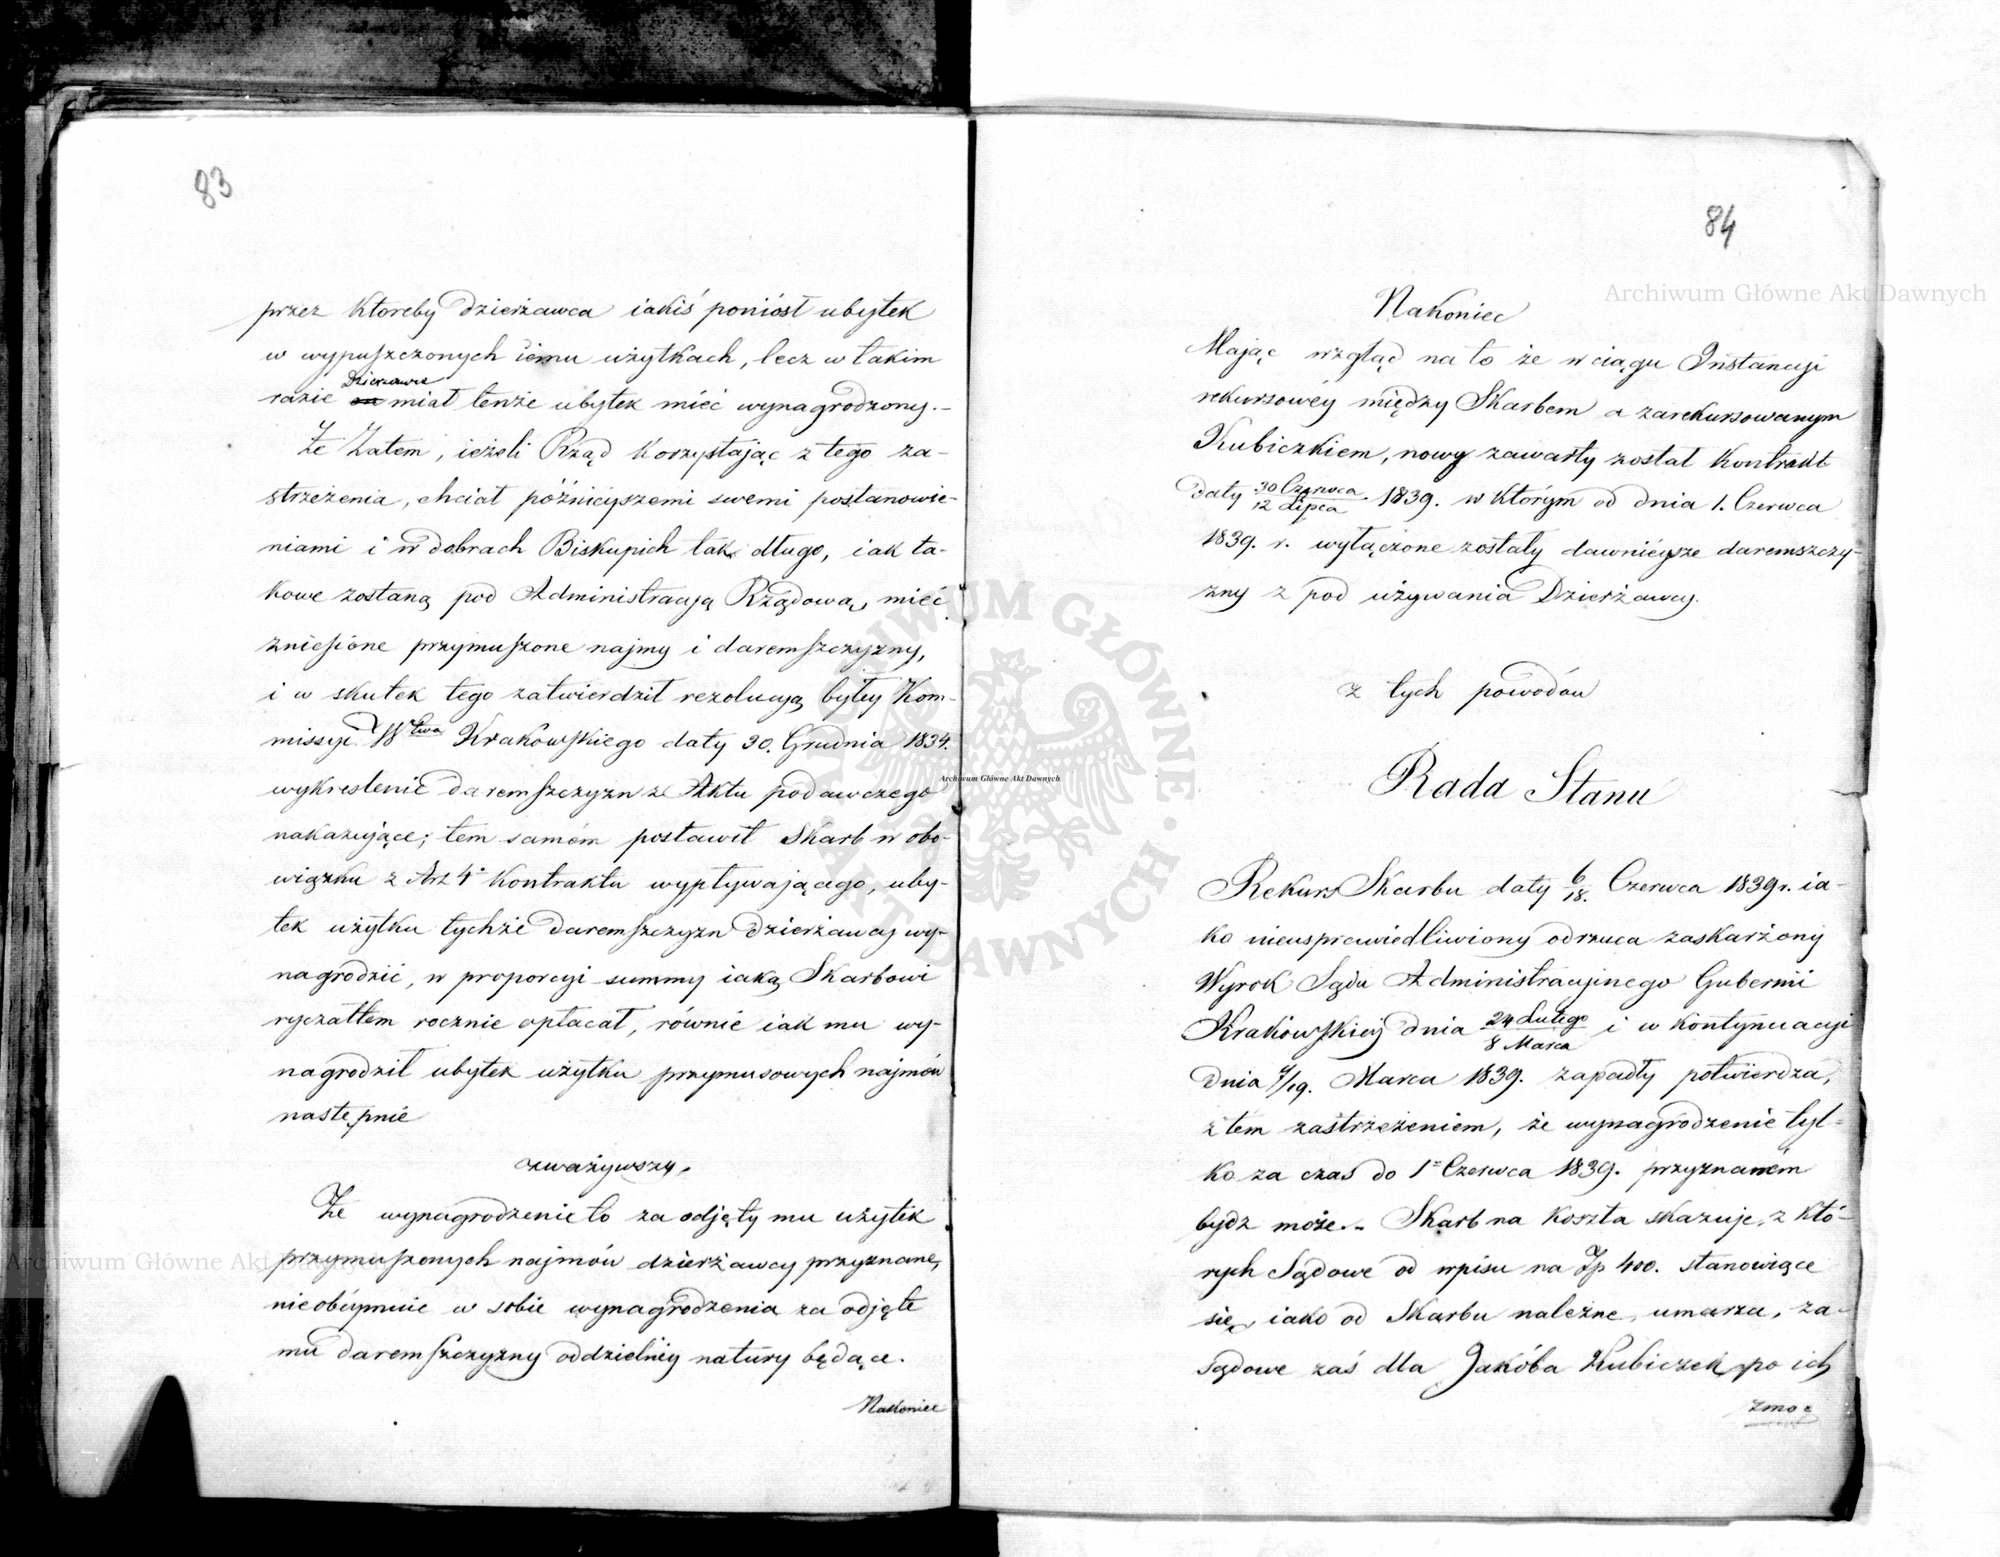 83
przez ktoreby Dzierżawca iakiś poniósł ubytek
w wypuszczonych iemu użytkach, lecz w takim
razie Dzierzawca miał tenże ubytek mieć wynagrodzony.-
Że Zatem, ieżeli Rząd korzystając z tego za-
strzeżenia, chciał późnieyszemi swemi postanowie-
niami i w dobrach Biskupich tak długo, iak ta-
kowe zostaną pod Administracyą Rządową, mieć
zniesione przymuszone najmy i daremszczyzny,
i w skutek tego zatwierdził rezolucyą byłey Kom-
missyi Wtwa Krakowskiego daty 30. Grudnia 1834.
wykreslenie daremszczyzn z Aktu podawczego
nakazujące; tem samém postawił Skarb w obo-
wiązku z Art 4° Kontraktu wypływającego, uby-
tek użytku tychże daremszczyzn dzierżawcy wy-
nagrodzić, w proporcyi summy iaką Skarbowi
ryczałtem rocznie opłacał, równie iak mu wy-
nagrodził ubytek użytku przymusowych najmów
następnie
zważywszy.
Że wynagrodzenie to za odjęty mu użytek
przymuszonych najmów dzierżawcy przyznane,
nieobéymuie w sobie wynagrodzenia za odjęte
mu daremszczyzny oddzielnéy natury będące.
Nakoniec
84
Nakoniec
Mając wzgląd na to że w ciągu Instancyi
rekursowéy między Skarbem a zarekursowanym
Kubiczkiem, nowy zawarty został Kontrakt
daty 30 Czerwca / 12 Lipca 1839. w którym od dnia 1. Czerwca
1839. r. wyłączone zostały dawnieysze daremszczy-
zny z pod używania Dzierżawcy.
z tych powodów
Rada Stanu
Rekurs Skarbu daty 6/18. Czerwca 1839 r. ia-
ko nieusprawiedliwiony odrzuca zaskarżony
Wyrok Sądu Administracyjnego Gubernii
Krakowskiéy dnia 24 Lutego / 8 Marca i w kontynuacyi
dnia 7/19. Marca 1839. zapadły potwierdza,
z tem zastrzeżeniem, że wynagrodzenie tyl-
ko za czas do 1° Czerwca 1839. przyznaném
bydź może.- Skarb na koszta skazuje, z któ-
rych Sądowe od wpisu na Zp 400. stanowiące
się, iako od Skarbu należne, umarza, za-
sądowe zaś dla Jakóba Kubiczek, po ich
zmoc
Archiwum Główne Akt Dawnych
Archiwum Główne Akt Dawnych
Archiwum Główne Akt Dawnych
ARCHIWUM GŁÓWNE AKT DAWNYCH